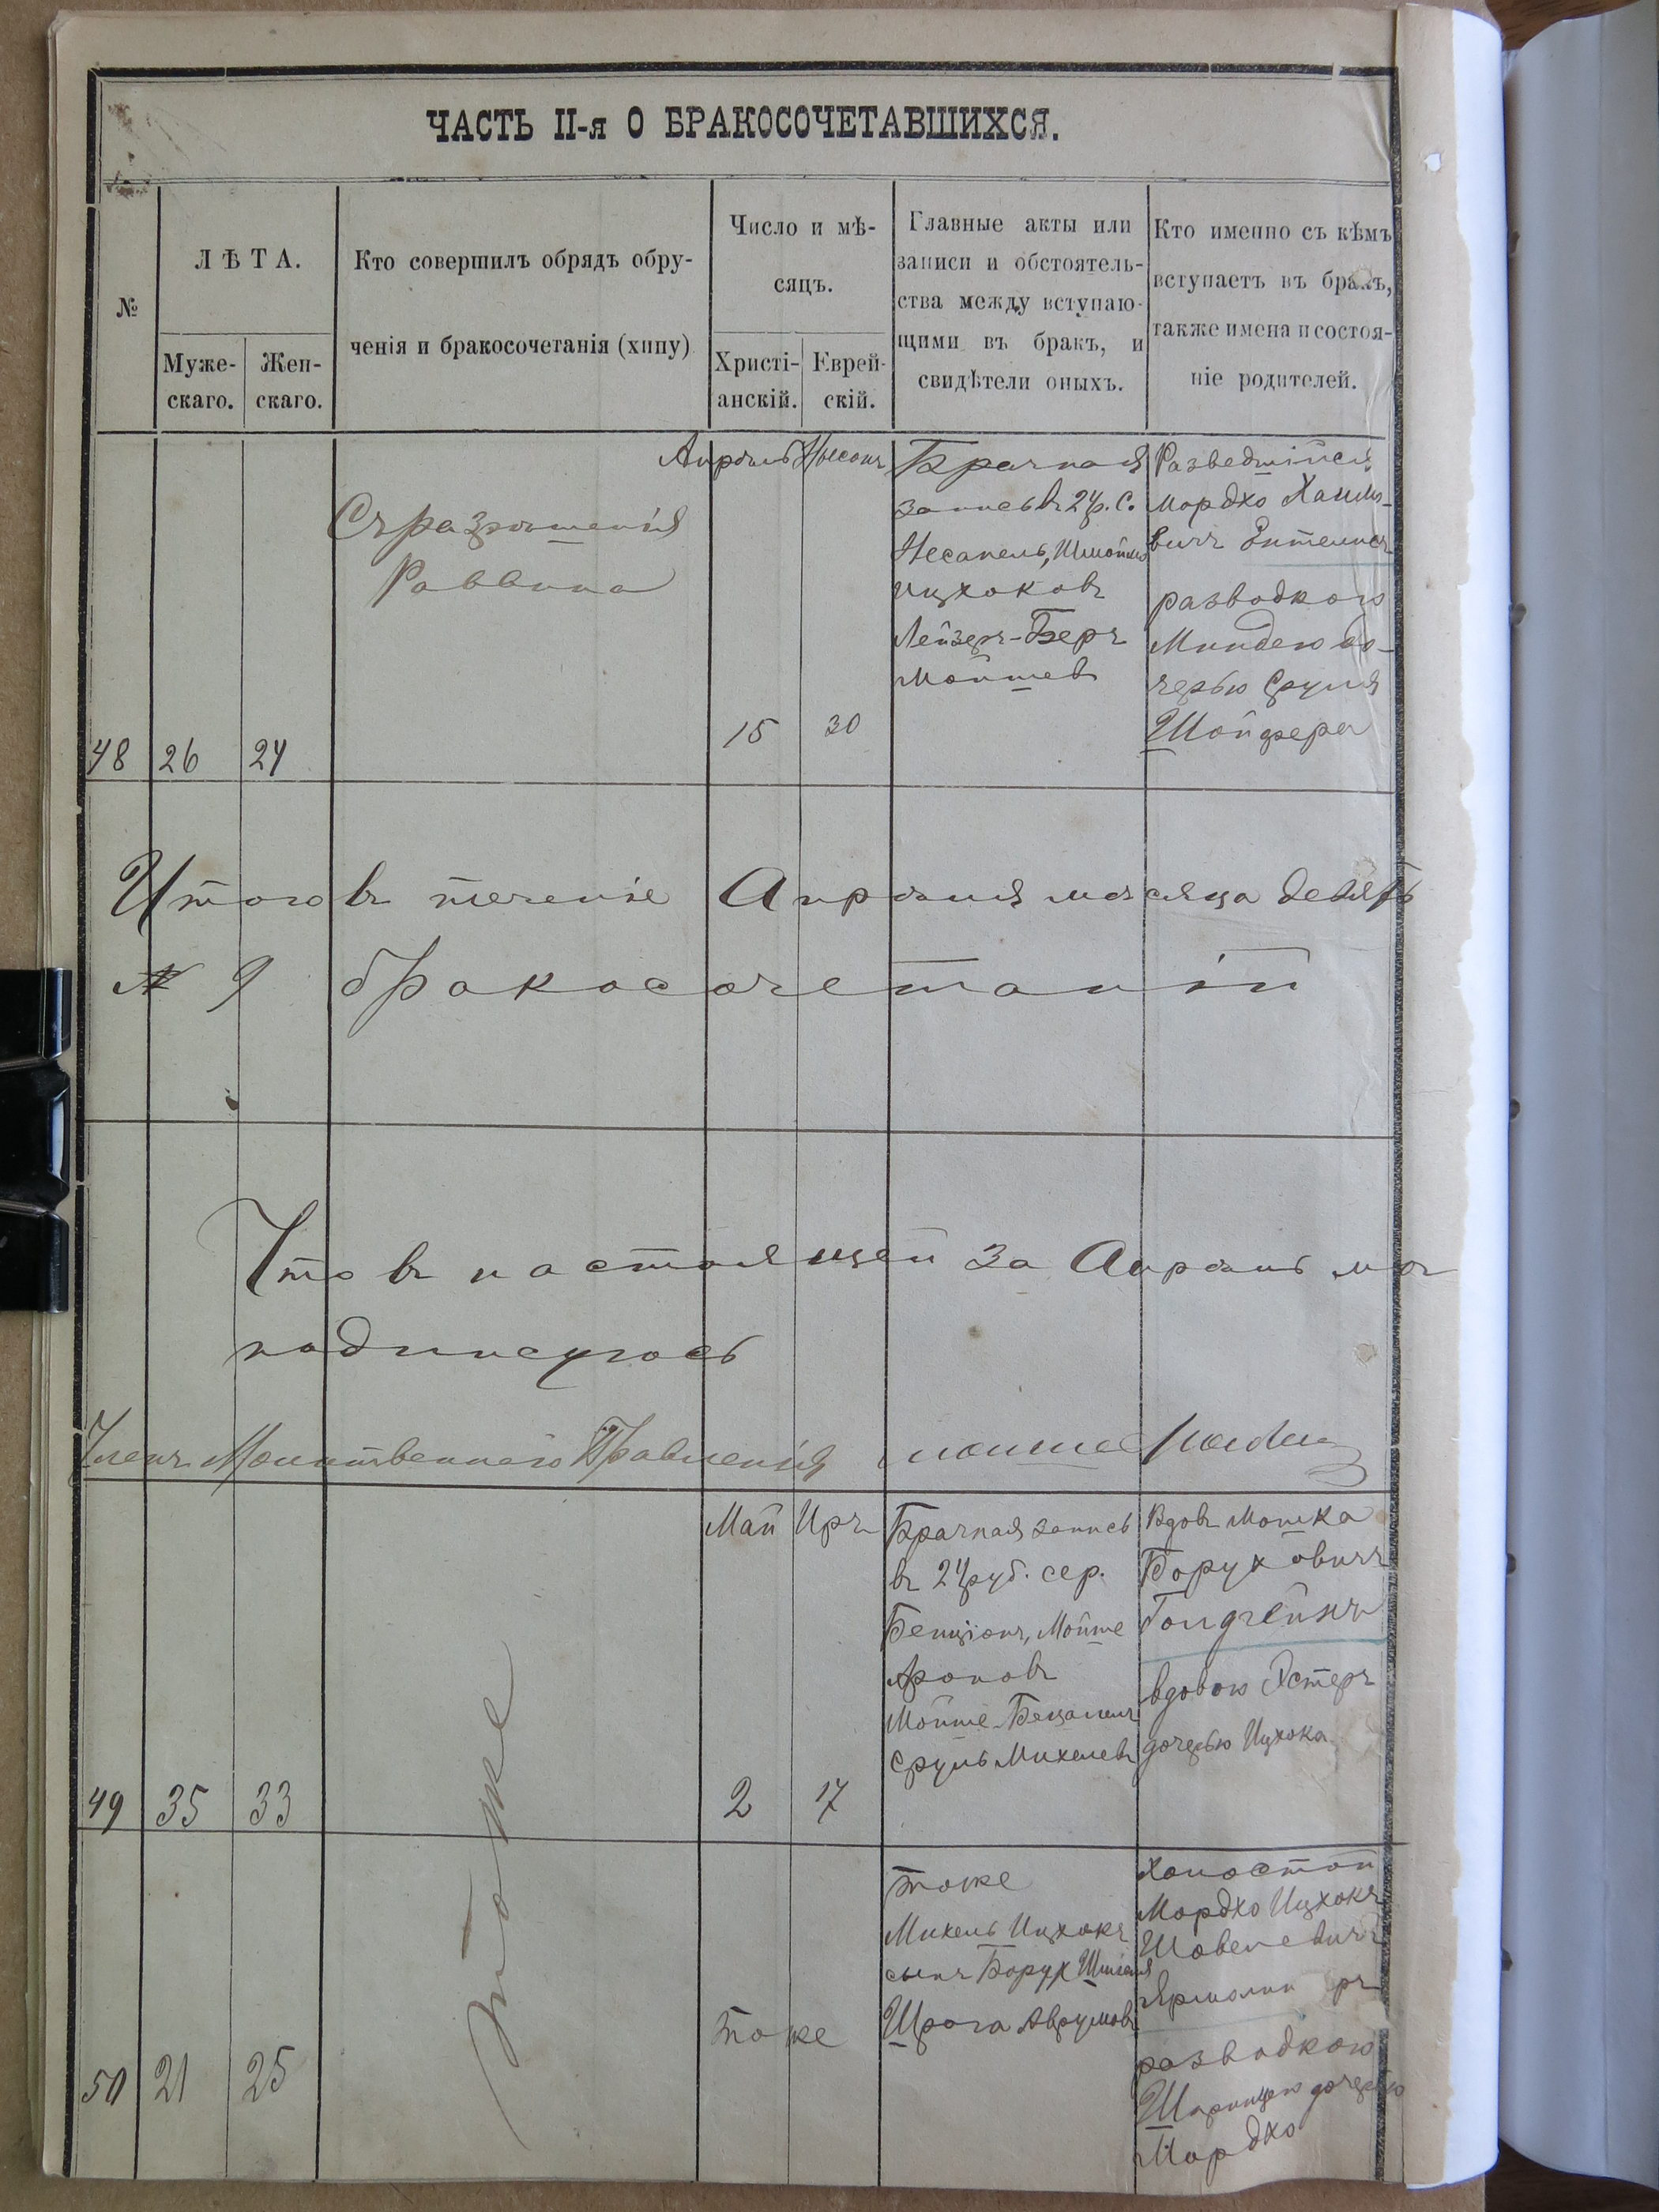 ЧАСТЬ II-я О БРАКОСОЧЕТАВШИХСЯ.
№
ЛѢТА.
Муже-
скаго.
Жен-
скаго.
Кто совершилъ обрядъ обру-
ченія и бракосочетанія (хипу)
Число и мѣ-
сяцъ.
Христі-
анскій.
Еврей-
скій.
Главные акты или
записи и обстоятель-
ства между вступаю-
щими въ бракъ, и
свидѣтели оныхъ.
Кто именно съ кѣмъ
вступаетъ въ бракъ,
также имена и состоя-
ніе родителей.
48
26
24
Съ разрѣшенія
Раввина
Апрѣль
15
30
Брачная
запись въ 24р. С.
Ицхоковъ
Лейзеръ-Беръ
Мойшевъ
Разведшійся
Мордхо
разводкою
Миндею до-
черью Сруля
Шойфера
Итого въ теченіе Апрѣля мѣсяца девять
№ 9 бракосочетаній
Что въ настоящей за Апрѣль мѣ
подписуюсь
Членъ Молитвеннаго Правленія
49
35
33
Тоже
Май
2
Иръ
17
Брачная запись
въ 24руб. сер.
Бенціонъ, Мойше
Ароновъ
Мойше-Бецалель
Сруль Михелевъ
Вдовъ Мошка
Боруховичъ
вдовою Эстеръ
дочерью Ицхока
50
21
25
тоже
тоже
Михель Ицхокъ
сынъ Борух
Шрага Аврумовъ
Холостой
Мордхо Ицхокъ
разводкою
дочерью
Мордхо